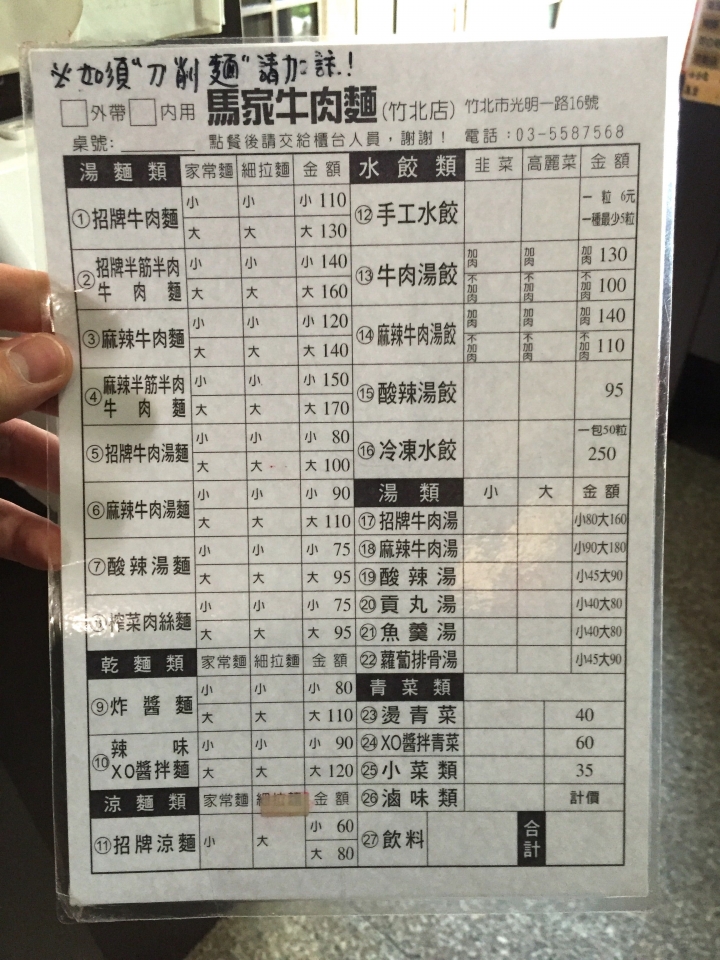 ※如須"刀削麵"請加註.!
外帶 内用 馬家牛肉麵(竹北店) 竹北市光明一路16號
桌號: 點餐後請交給櫃台人員，謝謝！ 電話:03-5587568
湯麵類 家常麵 細拉麵 金額
①招牌牛肉麵 小 小 小 110
大 大 大 130
②招牌半筋半肉牛肉麵 小 小 小 140
大 大 大 160
③麻辣牛肉麵 小 小 小 120
大 大 大 140
④麻辣半筋半肉牛肉麵 小 小 小 150
大 大 大 170
⑤招牌牛肉湯麵 小 小 小 80
大 大 大 100
⑥麻辣牛肉湯麵 小 小 小 90
大 大 大 110
⑦酸辣湯麵 小 小 小 75
大 大 大 95
⑧榨菜肉絲麵 小 小 小 75
大 大 大 95
乾麵類 家常麵 細拉麵 金額
⑨炸醬麵 小 小 小 80
大 大 大 110
⑩辣味XO醬拌麵 小 小 小 90
大 大 大 120
涼麵類 家常麵 細拉麵 金額
⑪招牌涼麵 小 大 小 60
大 80
水餃類 韭菜 高麗菜 金額
⑫手工水餃 一粒 6元
一種最少5粒
⑬牛肉湯餃 加肉 加肉 加肉 130
不加肉 不加肉 不加肉 100
⑭麻辣牛肉湯餃 加肉 加肉 加肉 140
不加肉 不加肉 不加肉 110
⑮酸辣湯餃 95
⑯冷凍水餃 一包50粒
250
湯類 小 大 金額
⑰招牌牛肉湯 小80大160
⑱麻辣牛肉湯 小90大180
⑲酸辣湯 小45大90
⑳貢丸湯 小40大80
㉑魚羹湯 小40大80
㉒蘿蔔排骨湯 小45大90
青菜類
㉓燙青菜 40
㉔XO醬拌青菜 60
㉕小菜類 35
㉖滷味類 計價
㉗飲料 合計